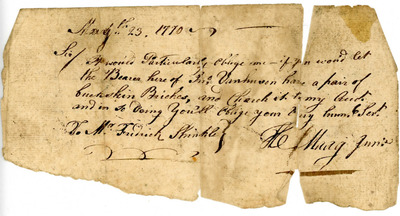 May th 23. 1770
Sir/
It would Particularly Obuge me if you woud let
the Bearer here of Vanhusen have a pair of
buckskin Briches, and Charch it to my Acct
and in So Doing You'll Obuge your Very humb. Ser.t
To Mr. Fredrick Shinkle
H Junr